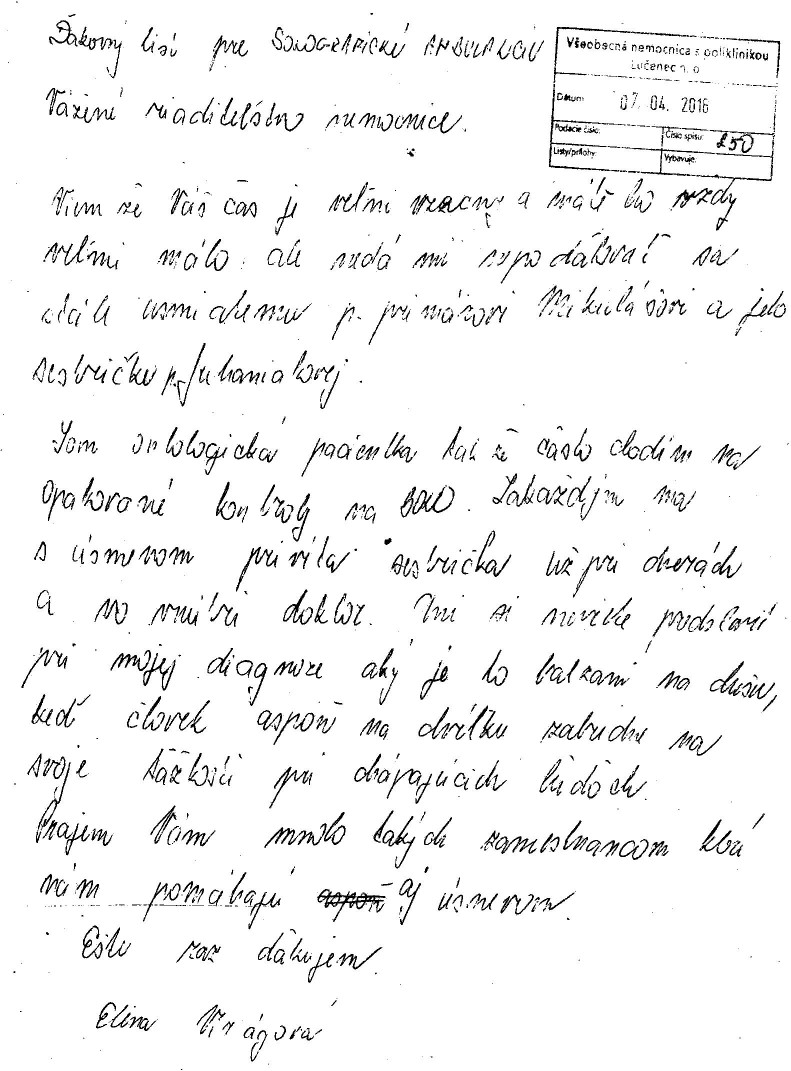 Ďakovný list pre SONOGRAFICKÚ AMBULANCIU
Všeobecná nemocnica s poliklinikou
Lučenec n. o.
Dátum: 07. 04. 2016
Podacie číslo: Číslo spisu: 250
Listy/prílohy: Vybavuje:
Vážené riaditeľstvo nemocnice.
Viem že Váš čas je veľmi vzacny a máte ho vždy
veľmi málo ale nedá mi nepoďakovať sa
stále usmiatemu p. primárovi Mikulášovi a jeho
sestričke p.
Som onkologická pacientka tak že často chodím na
opakované kontroly na SONO. Zakaždým ma
s úsmevom privíta sestrička už pri dverách
a vo vnútri doktor. Ani si neviete predstaviť
pri mojej diagnoze aký je to balzam na dušu,
keď človek aspoň na chvíľku zabudne na
svoje ťažkosti pri chápajúcich ľuďoch.
Prajem Vám mnoho takých zamestnancom ktorí
nám pomáhajú aspoň aj úsmevom.
Ešte raz ďakujem.
Elena Virágová